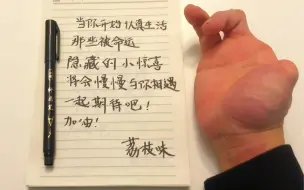 当你开始认真生活
那些被命运
隐藏的小惊喜
将会慢慢与你相遇
一起期待吧！
加油！
荔枝味